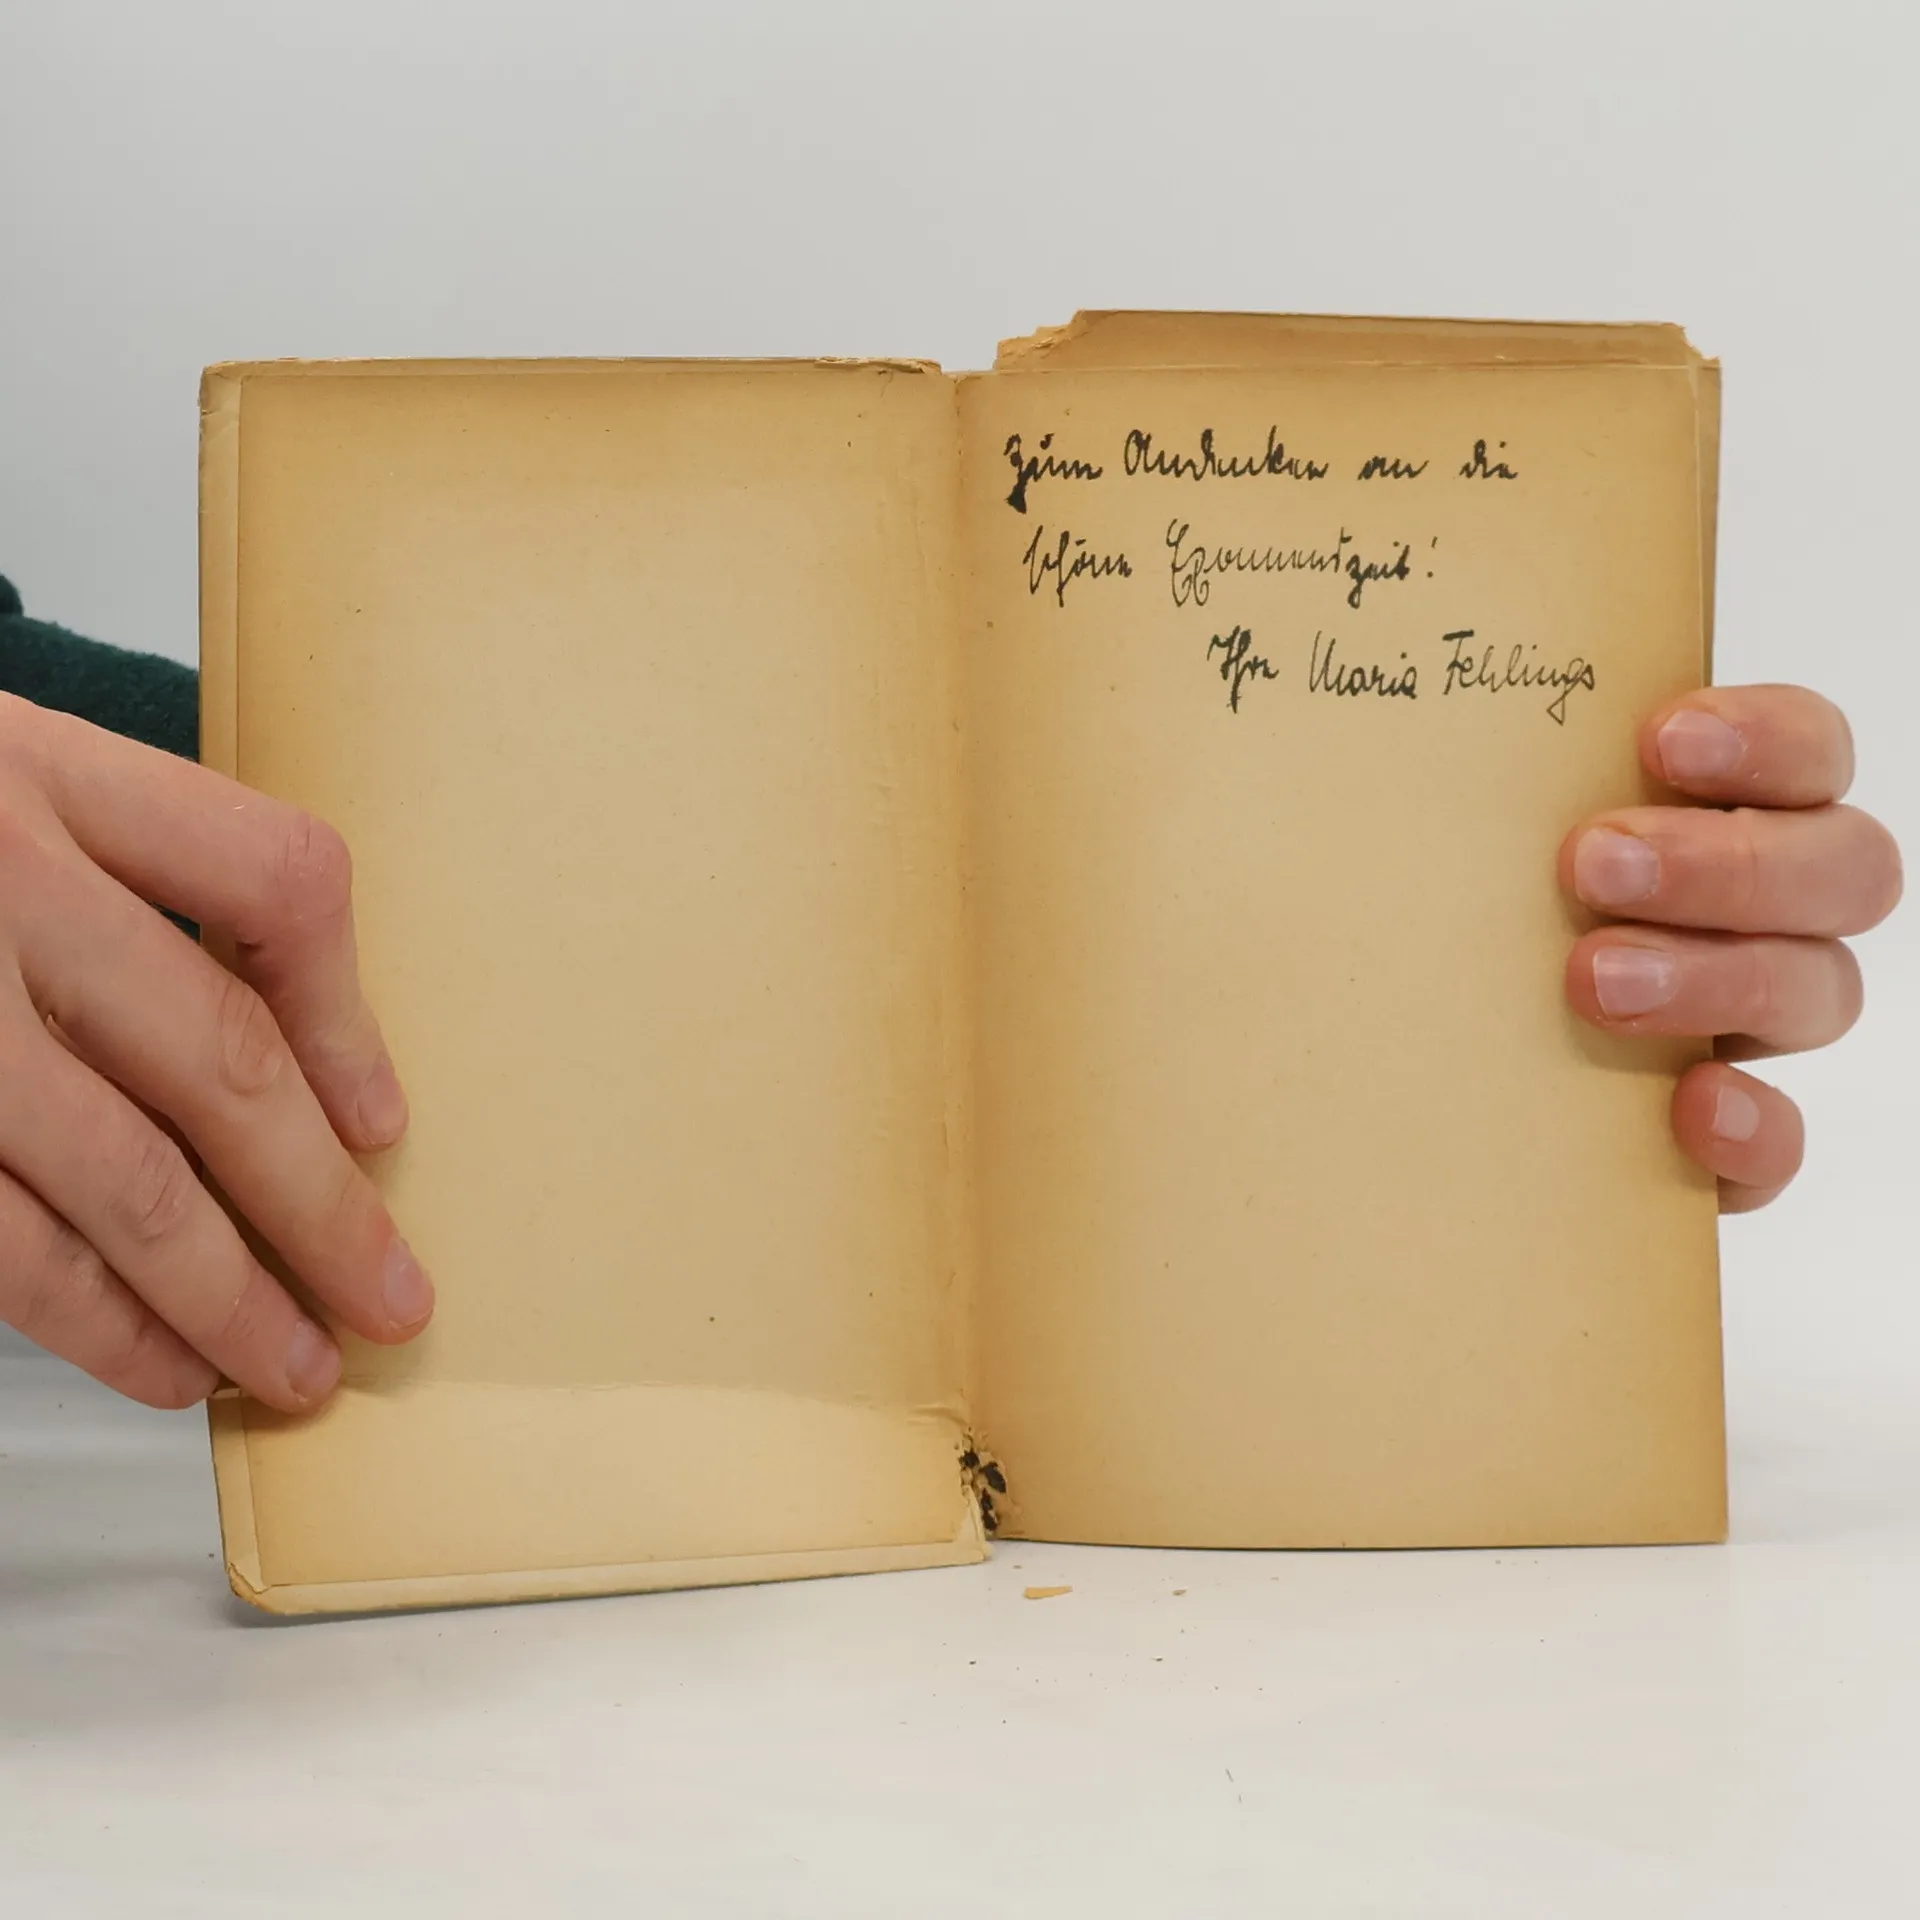 Zum Andenken an die
schöne Examenszeit!
Ihre Maria Fehlings